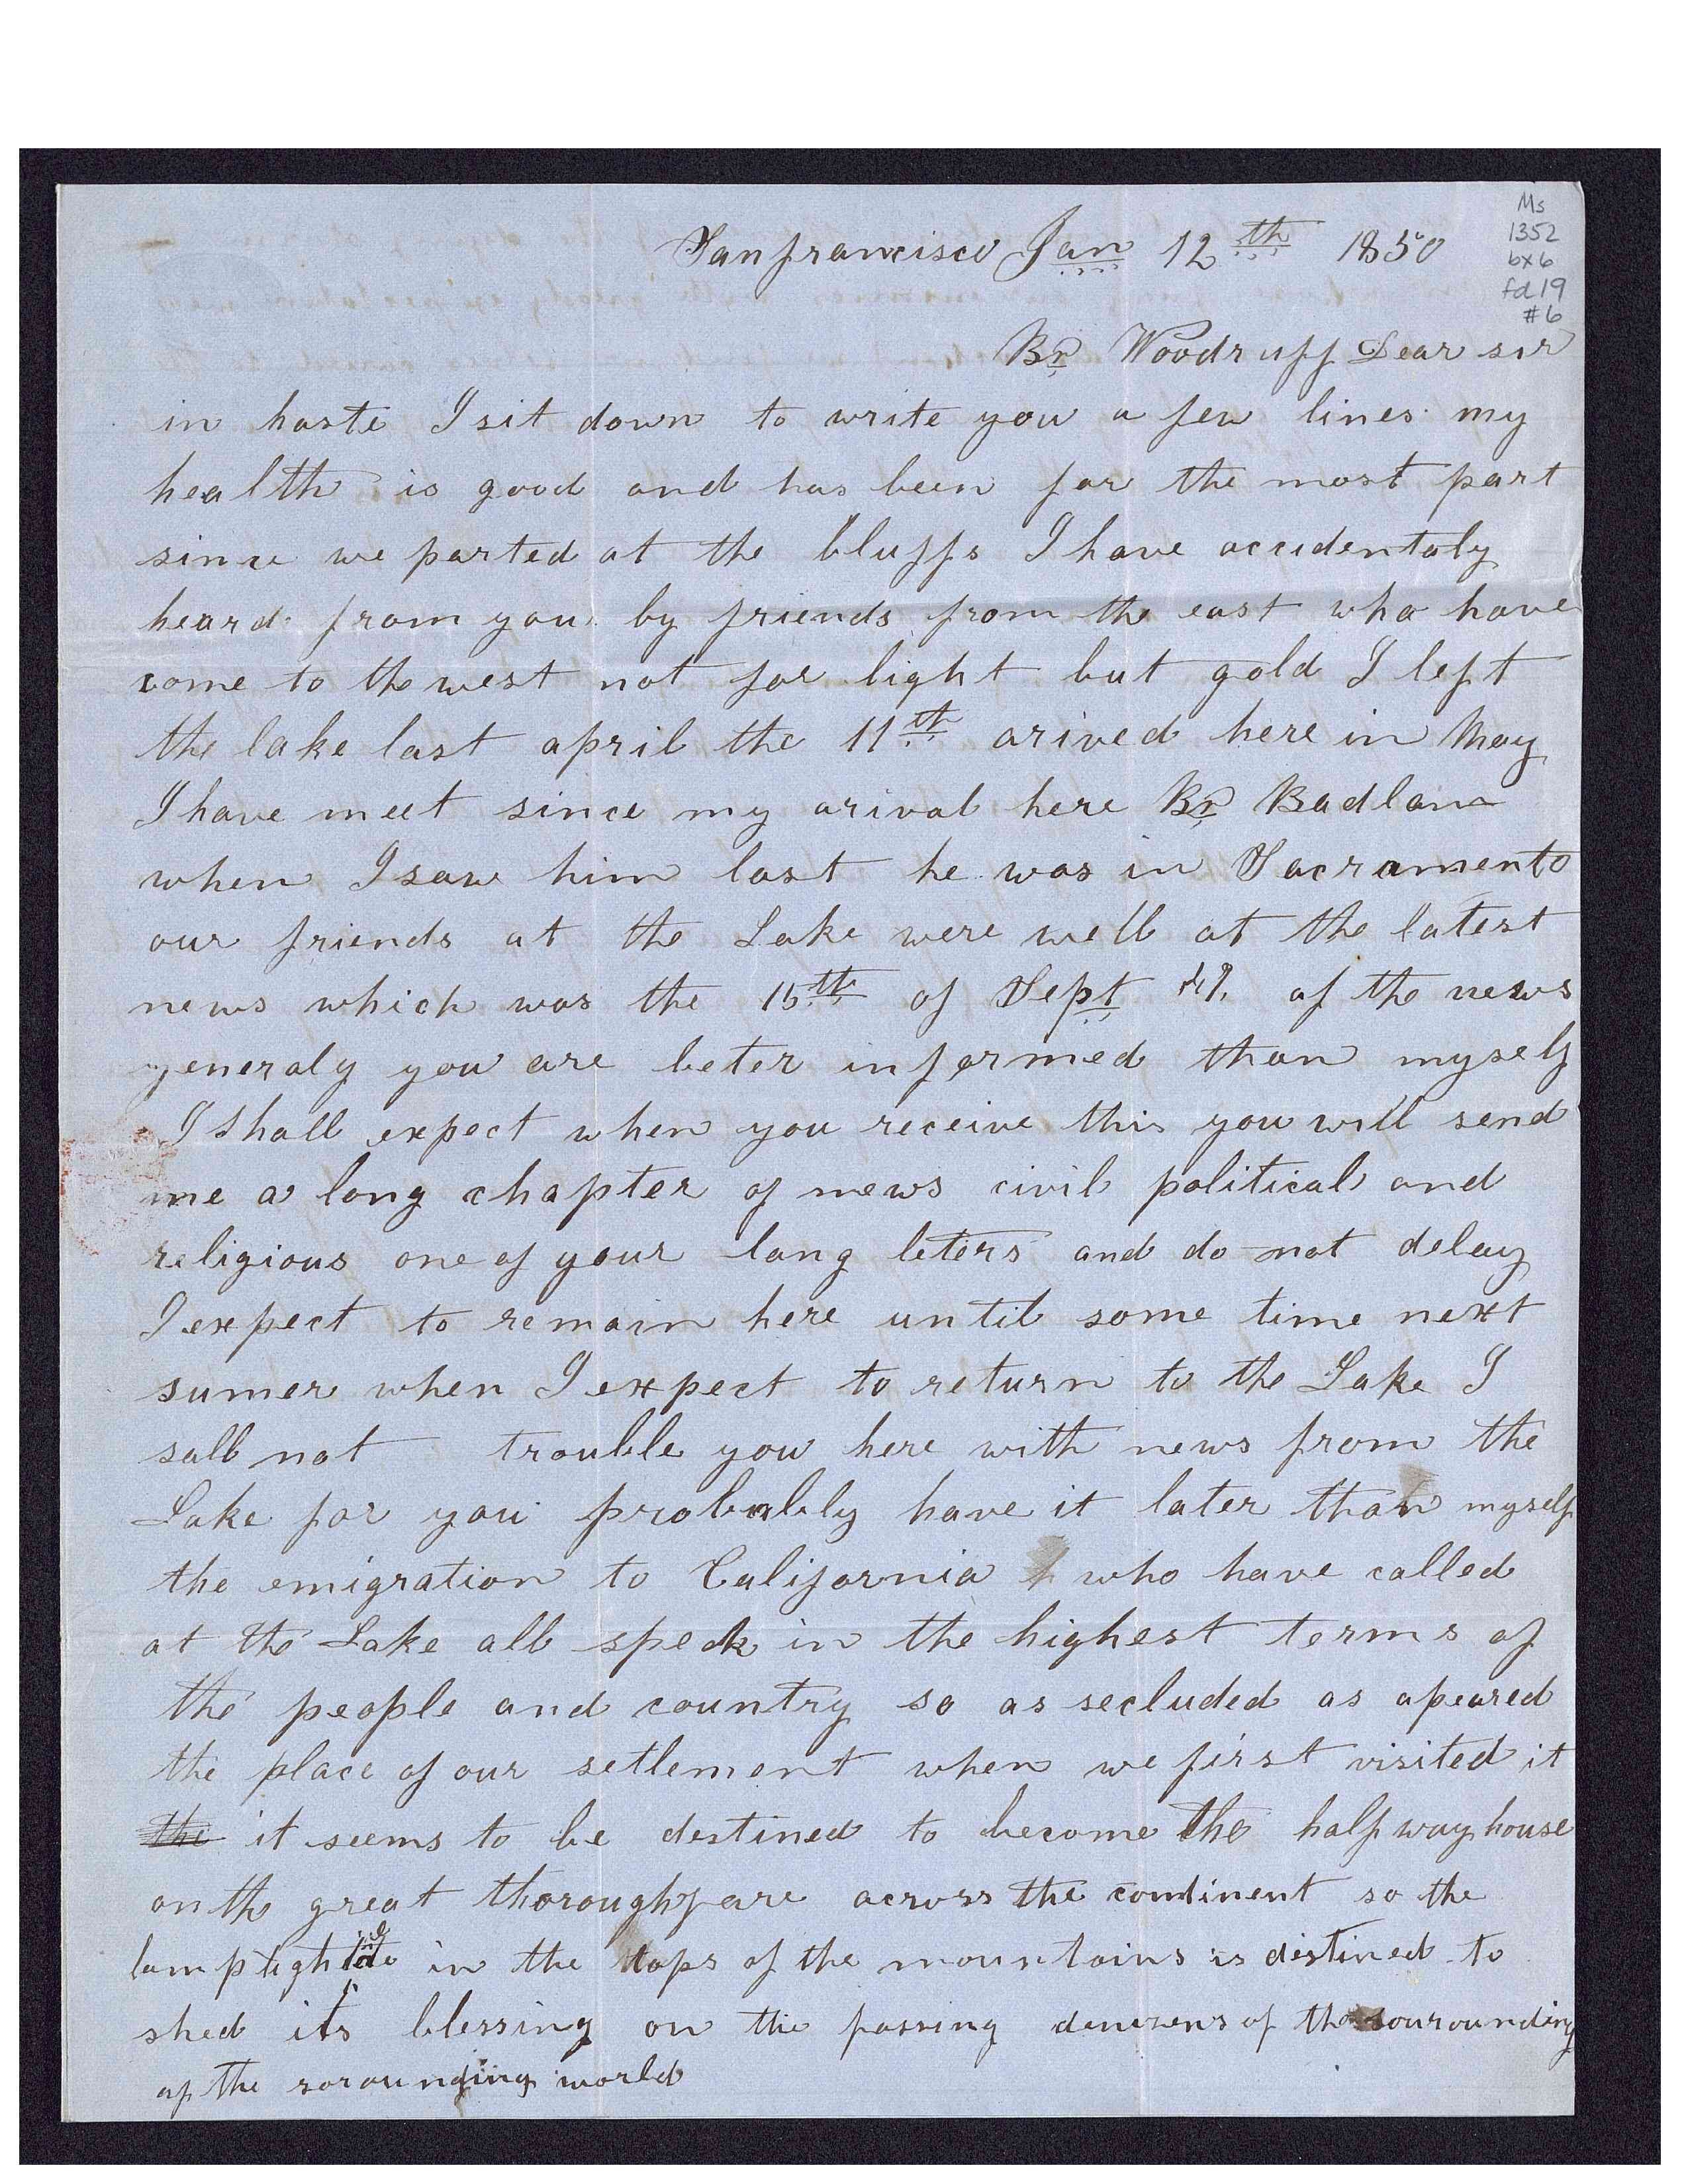 Ms
1352
bx 6
fd 19
#6
Sanfrancisco Jan 12th 1850
Br Woodruff Dear sir
in haste I sit down to write you a few lines my
health is good and has been for the most part
since we parted at the bluffs I have accidentaly
heard from you by friends from the east who have
come to the west not for light but gold I left
the lake last april the 11th arived here in May
I have meet since my arival here Br Badlam
when I saw him last he was in Sacramento
our friends at the Lake were well at the latest
news which was the 15th of Sept of the news
generaly you are beter informed than myself
I shall expect when you receive this you will send
me a long chapter of news civil political and
religious one of your long leters and do not delay
I expect to remain here until some time next
sumer when I expect to return to the Lake I
sall not trouble you here with news from the
Lake for you probably have it later than myself
the emigration to California who have called
at the Lake all speak in the highest terms of
the people and country so as secluded as apeared
the place of our setlement when we first visited it
the it seems to be destined to become the half way house
on the great thoroughfare across the continent so the
lamp lighted in the tops of the mountains is destined to
shed its blessing on the passing denizens of the sourounding
of the sorounding world